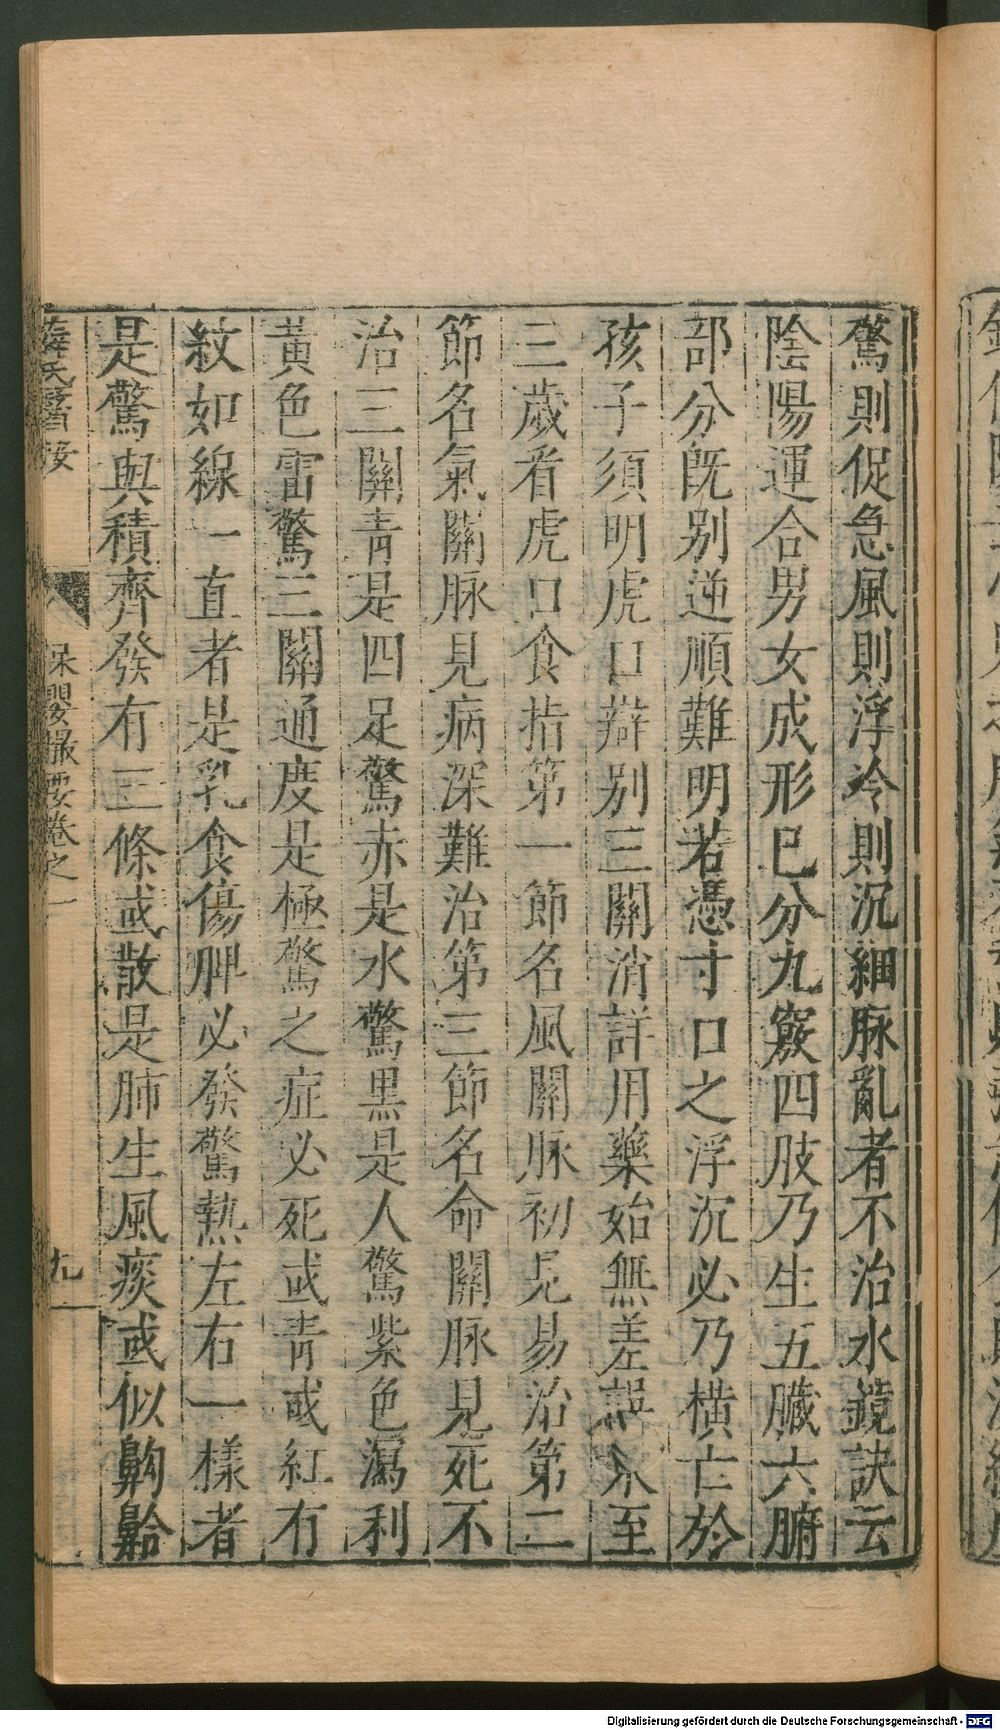 驚則促急風則浮冷則沉細脉亂者不治水鏡訣云
陰陽運合男女成形巳分九竅四肢乃生五臟六腑
部分旣别逆順難明若憑寸口之浮沉必乃橫亡於
孩子須明虎口辯别三關消詳用藥始無差誤未至
三歲看虎口食指第一節名風關脉初見易治第二
節名氣關脉見病深難治第三節名命關脉見死不
治三關青是四足驚赤是水驚黑是人驚紫色瀉利
黃色雷驚三關通度是極驚之症必死或青或紅有
紋如線一直者是乳食傷脾必發驚熱左右一樣者
是驚與積齊發有三條或散是肺生風痰或似齁䶎
薛氏醫按
保嬰撮要卷之一
九
Digitalisierung gefördert durch die Deutsche Forschungsgemeinschaft - DFG